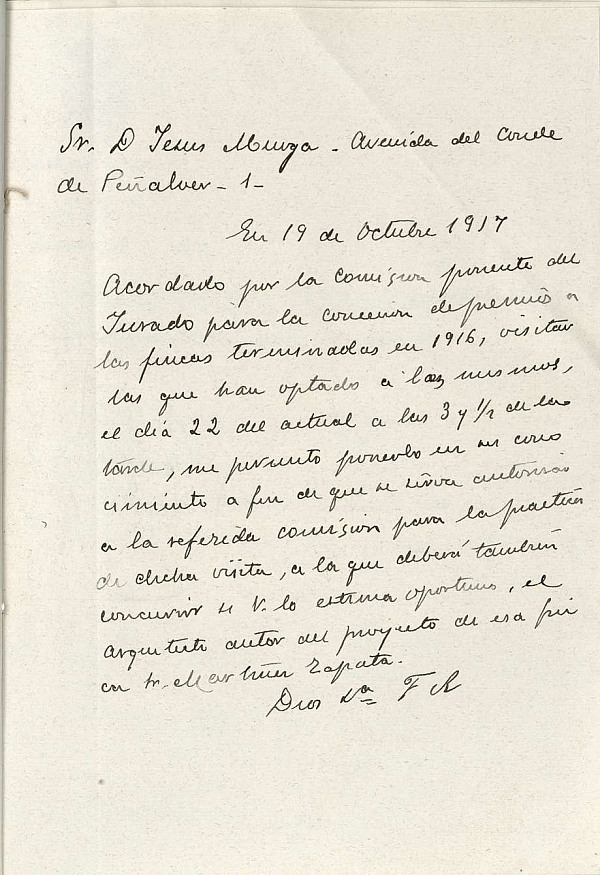 Sr. D Jesus Murga - Avenida del Conde
de Peñalver - 1 -
En 19 de Octubre 1917
Acordado por la Comision ponente del
Jurado para la concesion de premio a
las fincas terminadas en 1916, visitar
las que han optado a los mismos,
el dia 22 del actual a las 3 y 1/2 de la
tarde, me permito ponerlo en su cono
cimiento a fin de que se sirva autorizar
a la referida comision para la practica
de dicha visita, a la que deberá tambien
concurrir si V. lo estima oportuno, el
arquitecto autor del proyecto de esa fin
ca Sr. Martinez Zapata.
Dios Va F R